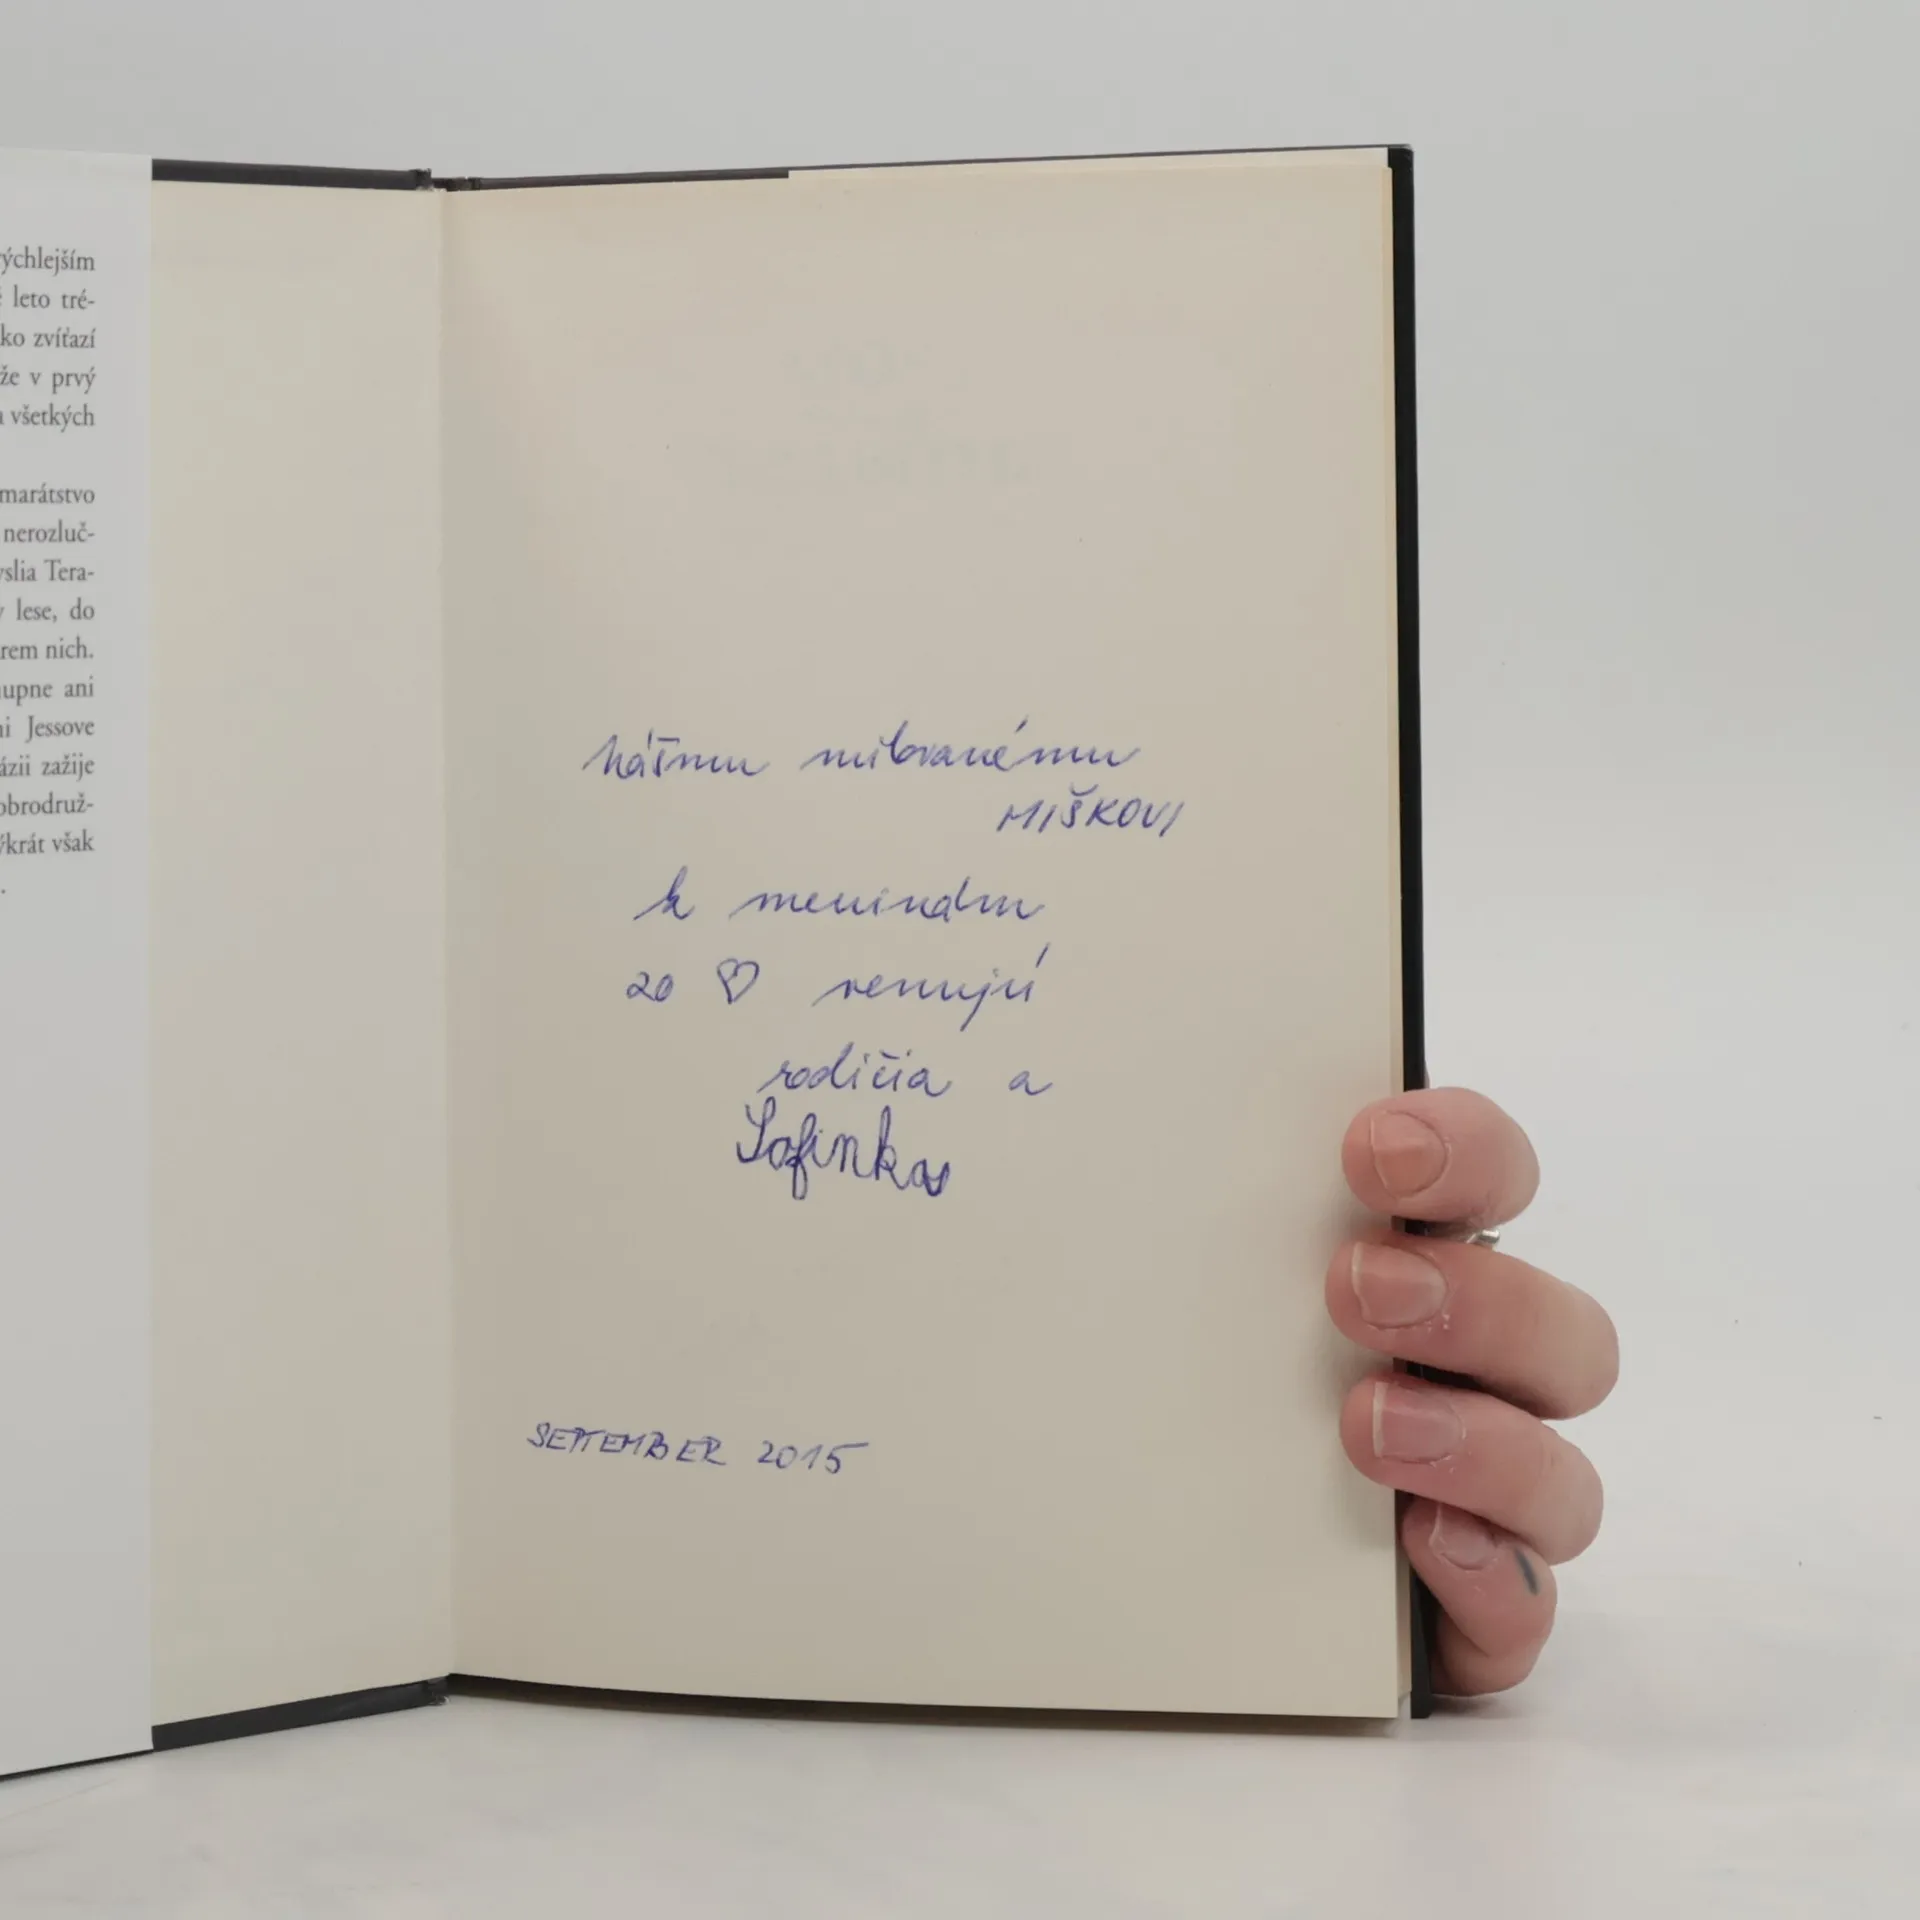 ýchlejším
leto tré-
ko zvíťazí
že v prvý
všetkých
marátstvo
nerozluč-
yslia Tera-
lese, do
rem nich.
upne ani
ni Jessove
ázii zažije
obrodruž-
ýkrát však
.
Nášmu milovanému
MIŠKOVI
k meninám
zo ♡ venujú
rodičia a
Sofinka
SEPTEMBER 2015